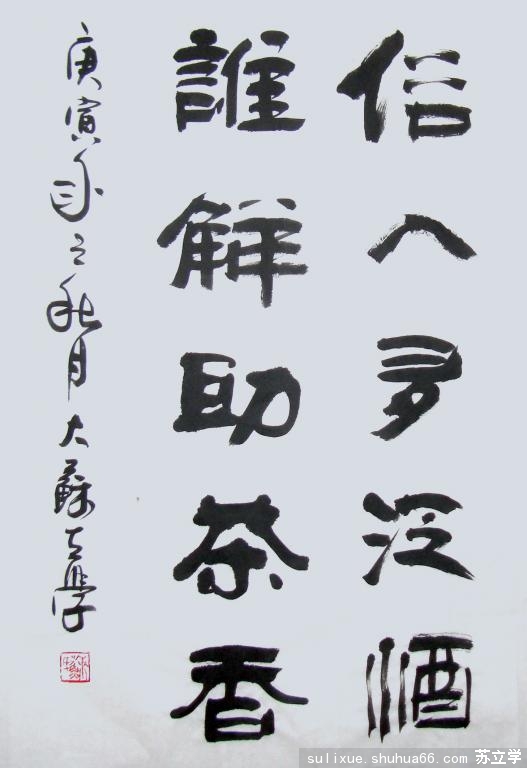 俗人多泛酒
誰解助茶香
庚寅之秋月大蘇立學
sulixue.shuhua66.com 苏立学